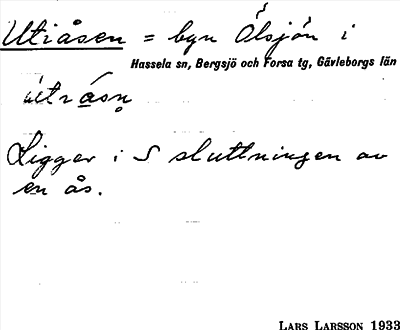 Utiåsen = byn Ölsjön i
Hassela sn, Bergsjö och Forsa tg, Gävleborgs län
Ligger i S sluttningen av
en ås.
LARS LARSSON 1933